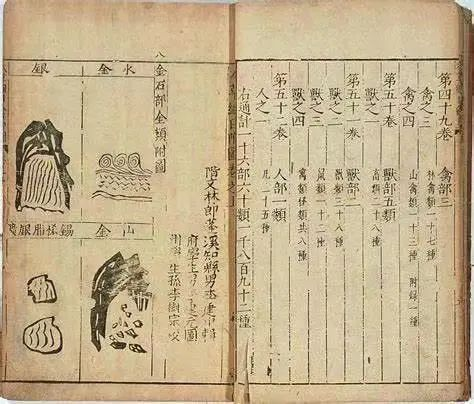 第四十九卷 禽部三
禽之三 林禽類一十七種
禽之四 山禽類一十三種 附錄一種
第五十卷 獸部五類
獸之 畜類二十八種
第五十一卷 獸部二
獸之 獸類三十八種
獸之 鼠類一十二種
獸之四 寓類怪類共八種
第五十二卷 人部一類
人之一
右通計一十六部六十類一千八百九十二種
階文林郎蓬溪知縣男李建中輯
府學生 圖
生孫李樹宗校
金石部金類附圖
水金
銀
山金
錫